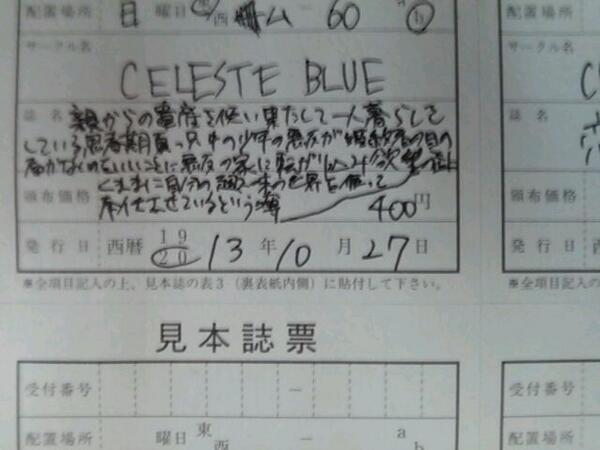 配置場所 日 曜日 東 西 ム － 60 a b
サークル名
CELESTE BLUE
誌名 親からの遺産を使い果たして一人暮らしを
している思春期真っ只中の少年の悪友が
ないのをいいことに悪友の家に転がり
くままに自分の 世界を
させているという
頒布価格 400円
発行日 西暦 19 20 13 年 10 月 27 日
※全項目記入の上、見本誌の表3（裏表紙内側）に貼付して下さい。
※全
見本誌票
受付番号 －
受付番号
配置場所 曜日 東 西 － a b
配置場所
サークル名
誌名
頒布価格
発行日